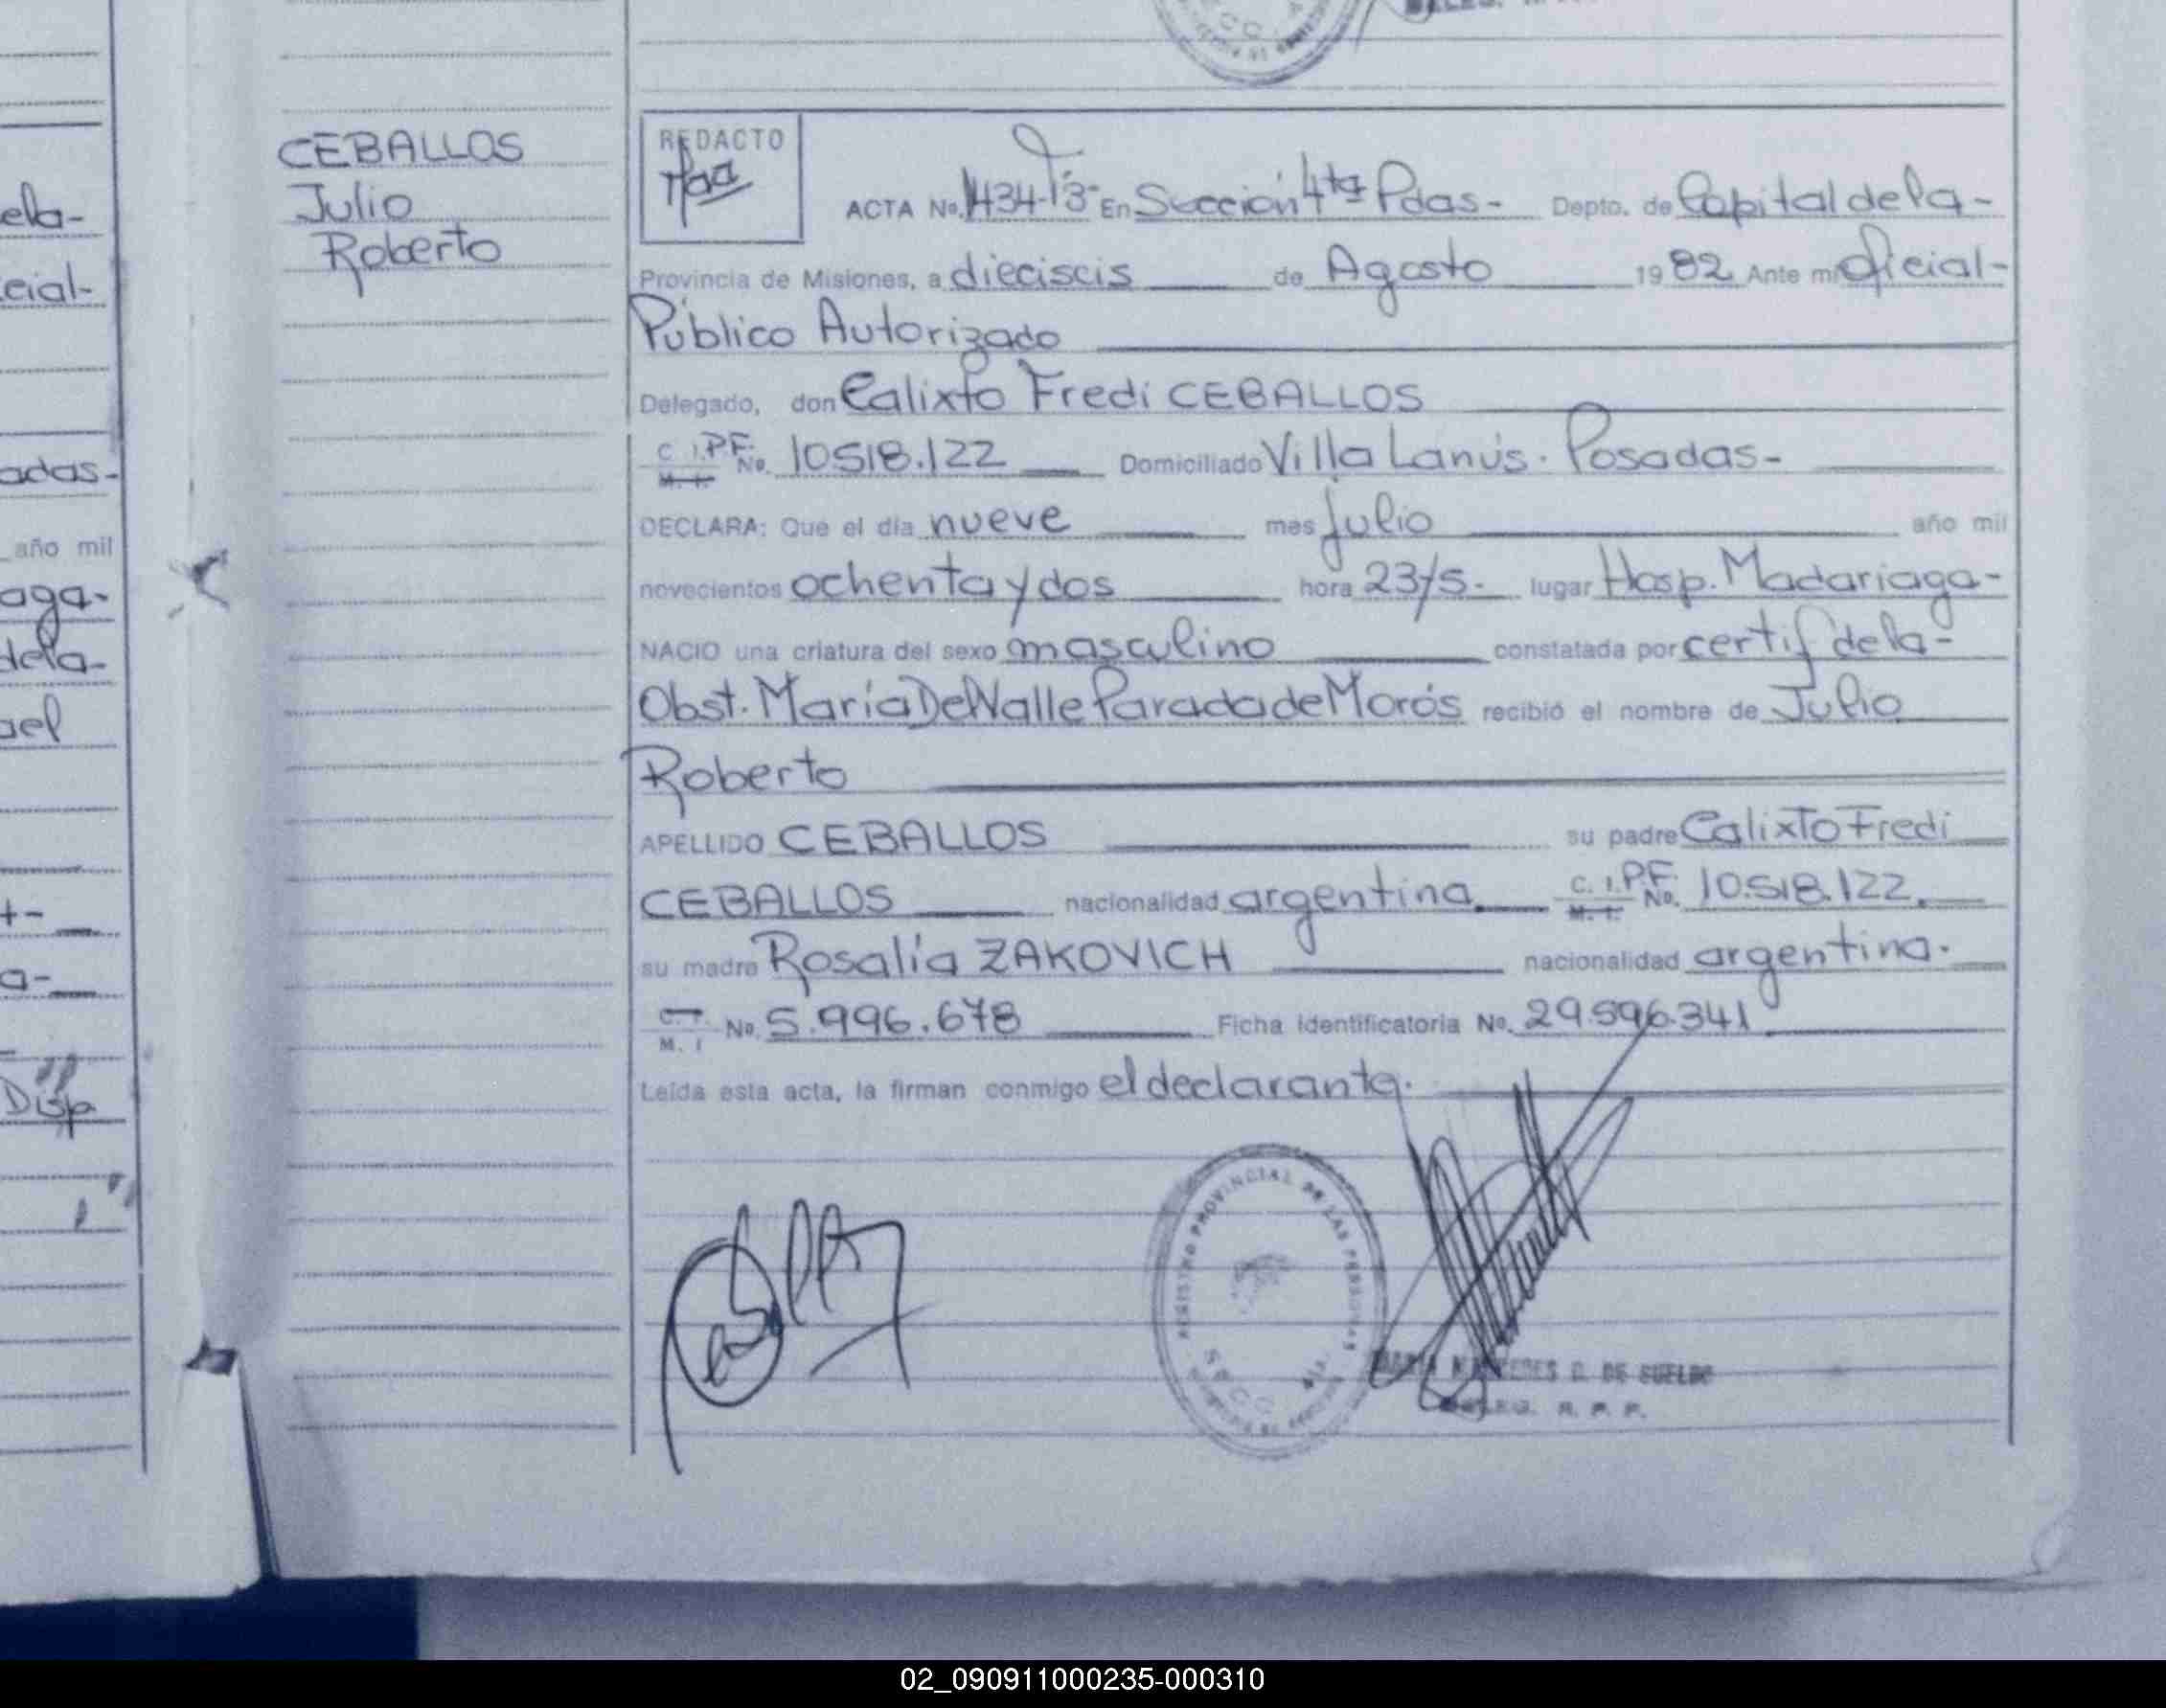 CEBALLOS
Julio
Roberto
REDACTO
ACTA No. 1434-T3- En Sección 4ta Pdas- Depto. de Capital de la-
Provincia de Misiones, a dieciseis de Agosto 1982 Ante mi Oficial-
Público Autorizado
Delegado, don Calixto Fredi CEBALLOS
C. I. P.F. No. 10.518.122 Domiciliado Villa Lanús. Posadas-
M. I.
DECLARA: Que el día nueve mes Julio año mil
novecientos ochenta y dos hora 23/5- lugar Hosp. Madariaga-
NACIO una criatura del sexo masculino constatada por certif de la-
Obst. María Del Valle Parada de Morós recibió el nombre de Julio
Roberto
APELLIDO CEBALLOS su padre Calixto Fredi
CEBALLOS nacionalidad argentina. C. I. P.F. No. 10.518.122.
M. I.
su madre Rosalía ZAKOVICH nacionalidad argentina.
C. I. No. 5.996.678 Ficha Identificatoria No. 29.596.341
M. I
Leída esta acta, la firman conmigo el declarante.
REGISTRO PROVINCIAL DE LAS PERSONAS
DE SUELDO
R. P. P.
ela-
cial-
adas-
año mil
aga-
dela-
ael
Disp
02_090911000235-000310